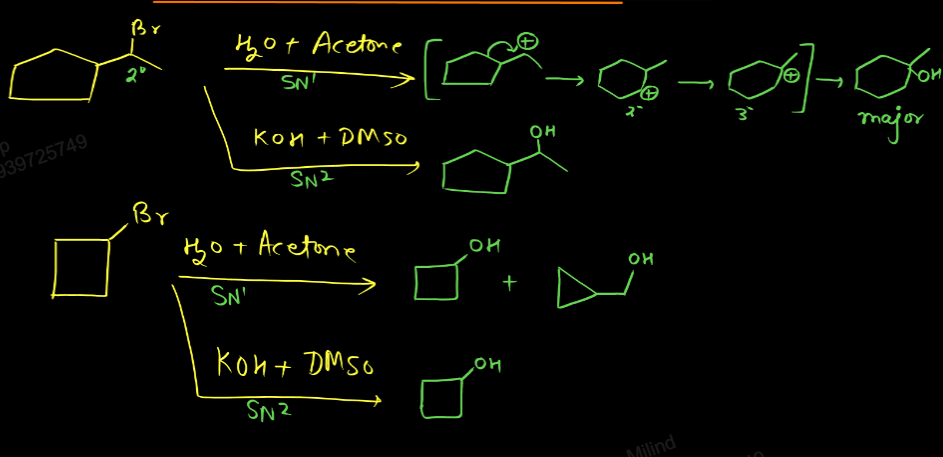 Br
2°
H2O + Acetone
SN1
⊕
⊕
2°
⊕
3°
OH
major
KOH + DMSO
SN2
OH
939725749
Br
H2O + Acetone
SN1
OH
+
OH
KOH + DMSO
SN2
OH
Milind